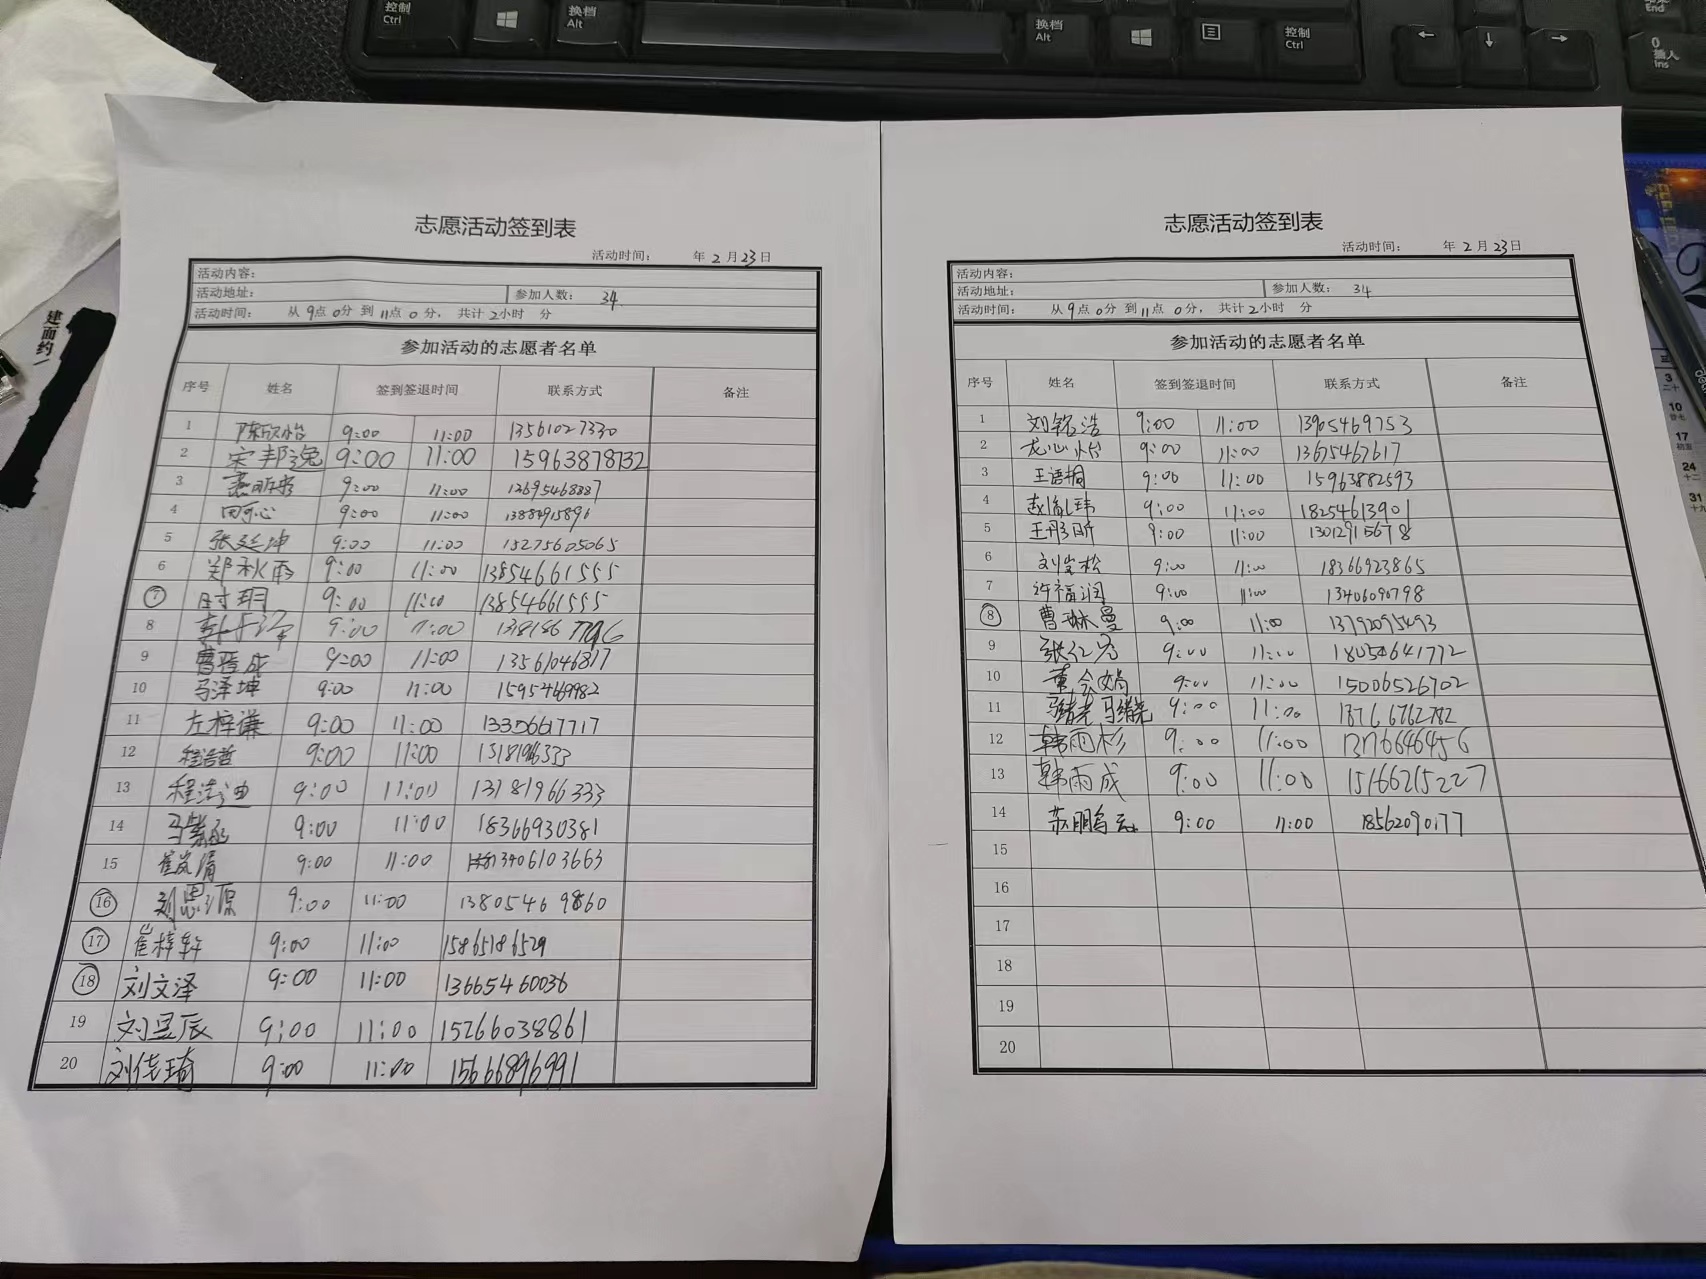 控制
Ctrl
换档
Alt
换档
Alt
控制
Ctrl
End
0
插入
Ins
建面约
志愿活动签到表
活动时间： 年2月23日
活动内容：
活动地址： 参加人数：34
活动时间： 从9点0分到11点0分，共计2小时 分
参加活动的志愿者名单
序号 姓名 签到签退时间 联系方式 备注
1 陈欣怡 9:00 11:00 13561027330
2 宋邦逸 9:00 11:00 15963878732
3 9:00 11:00 13695468887
4 田可心 9:00 11:00
5 张廷坤 9:00 11:00 15275605065
6 郑秋雨 9:00 11:00 13854661555
7 时玥 9:00 11:00 13854661555
8 9:00 11:00
9 曹晋成 9:00 11:00 13561046817
10 马泽坤 9:00 11:00 15954669982
11 左梓谦 9:00 11:00 13306617717
12 程浩哲 9:00 11:00
13 程浩迪 9:00 11:00 13181966333
14 马紫涵 9:00 11:00 18366930381
15 崔岚清 9:00 11:00 13406103663
16 刘思源 9:00 11:00 13805469860
17 崔梓轩 9:00 11:00 15865186529
18 刘文泽 9:00 11:00 13665460036
19 刘昱辰 9:00 11:00 15266038861
20 刘佳琦 9:00 11:00 15666896991
志愿活动签到表
活动时间： 年2月23日
活动内容：
活动地址： 参加人数：34
活动时间： 从9点0分到11点0分，共计2小时 分
参加活动的志愿者名单
序号 姓名 签到签退时间 联系方式 备注
1 刘铭浩 9:00 11:00 13905469753
2 龙心怡 9:00 11:00 13675467617
3 王语桐 9:00 11:00 15963882593
4 赵胤玮 9:00 11:00 18254613901
5 王彤昕 9:00 11:00 13012915678
6 9:00 11:00 18366923865
7 许福润 9:00 11:00 13406090798
8 曹琳曼 9:00 11:00 13792095493
9 9:00 11:00 18054641772
10 董会娟 9:00 11:00 15006526702
11 马绪尧 9:00 11:00 18766762782
12 韩雨杉 9:00 11:00 1376646456
13 韩雨成 9:00 11:00 15166215227
14 9:00 11:00 18562090177
15
16
17
18
19
20
3
10
17
24
31